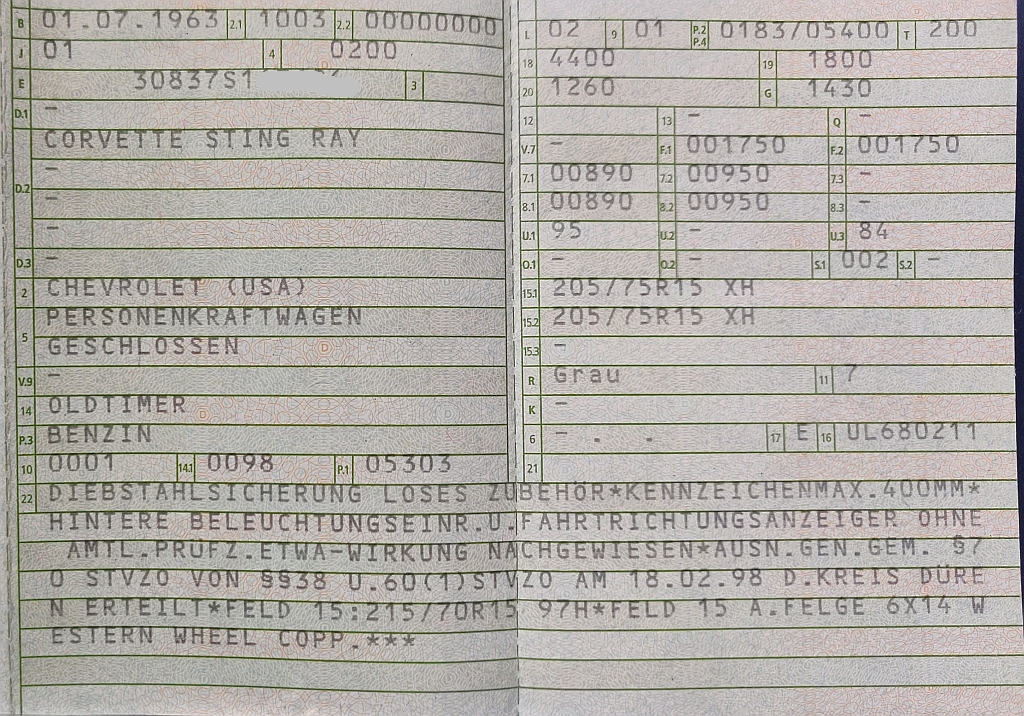 B 01.07.1963 2.1 1003 2.2 00000000
J 01 4 0200
E 30837S1 3
D.1 –
CORVETTE STING RAY
D.2 –
–
–
D.3 –
2 CHEVROLET (USA)
PERSONENKRAFTWAGEN
5 GESCHLOSSEN
V.9 –
14 OLDTIMER
P.3 BENZIN
10 0001 14.1 0098 P.1 05303
L 02 9 01 P.2 P.4 0183/05400 T 200
18 4400 19 1800
20 1260 G 1430
12 13 – Q –
V.7 – F.1 001750 F.2 001750
7.1 00890 7.2 00950 7.3 –
8.1 00890 8.2 00950 8.3 –
U.1 95 U.2 – U.3 84
O.1 – O.2 – S.1 002 S.2 –
15.1 205/75R15 XH
15.2 205/75R15 XH
15.3 –
R Grau 11 7
K –
6 – . . 17 E 16 UL680211
21
22 DIEBSTAHLSICHERUNG LOSES ZUBEHÖR*KENNZEICHENMAX.400MM*
HINTERE BELEUCHTUNGSEINR.U.FAHRTRICHTUNGSANZEIGER OHNE
AMTL.PRÜFZ.ETWA-WIRKUNG NACHGEWIESEN*AUSN.GEN.GEM. §7
0 STVZO VON §§38 U.60(1)STVZO AM 18.02.98 D.KREIS DÜRE
N ERTEILT*FELD 15:215/70R15 97H*FELD 15 A.FELGE 6X14 W
ESTERN WHEEL COPP.***